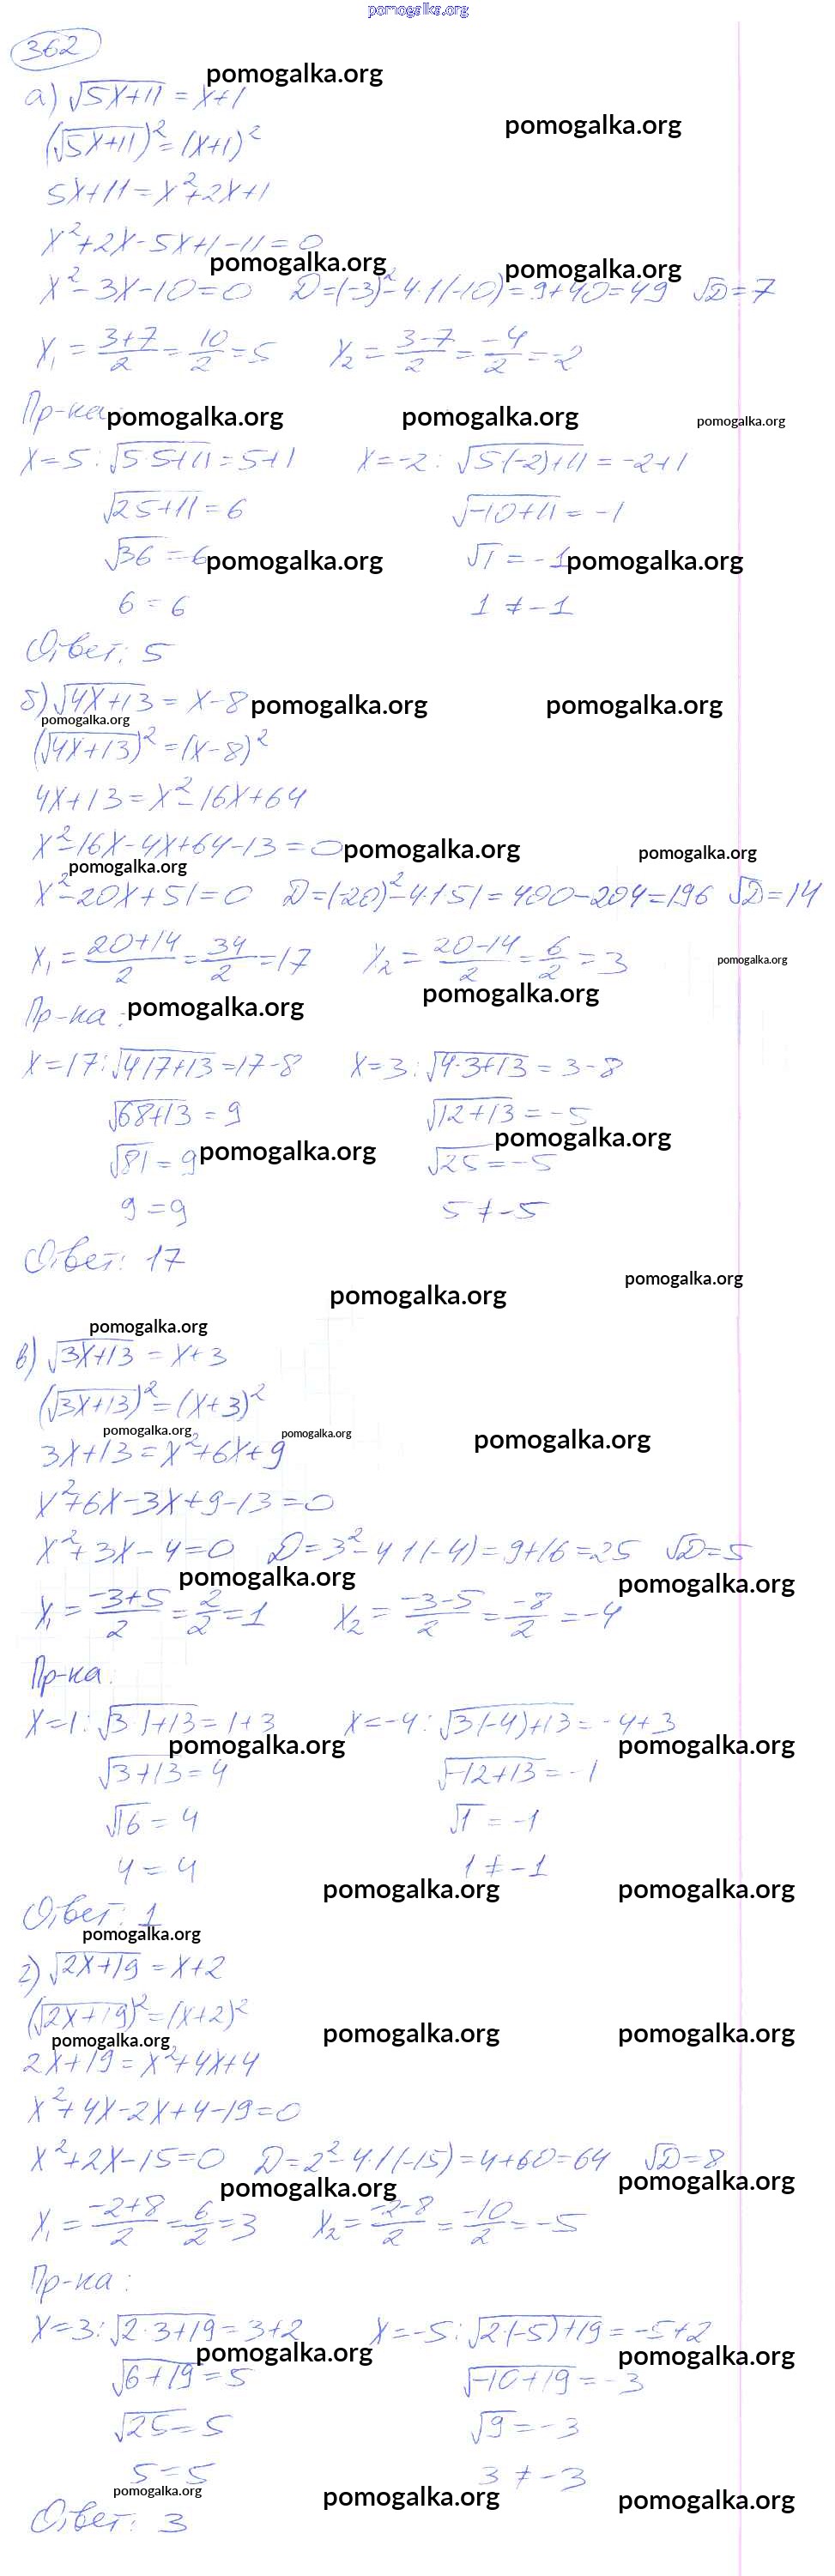 pomogalka.org
362
pomogalka.org
а) √5x+11 = x+1
pomogalka.org
(√5x+11)² = (x+1)²
5x+11 = x²+2x+1
x²+2x-5x+1-11=0
pomogalka.org pomogalka.org
x²-3x-10=0 D=(-3)²-4·1(-10)=9+40=49 √D=7
x₁ = (3+7)/2 = 10/2 = 5 x₂ = (3-7)/2 = -4/2 = -2
Пр-ка: pomogalka.org pomogalka.org pomogalka.org
x=5: √5·5+11 = 5+1 x=-2: √5(-2)+11 = -2+1
√25+11 = 6 √-10+11 = -1
√36 = 6 pomogalka.org √1 = -1 pomogalka.org
6 = 6 1 ≠ -1
Ответ: 5
б) √4x+13 = x-8 pomogalka.org pomogalka.org
pomogalka.org
(√4x+13)² = (x-8)²
4x+13 = x²-16x+64
x²-16x-4x+64-13=0 pomogalka.org pomogalka.org
pomogalka.org
x²-20x+51=0 D=(-20)²-4·1·51=400-204=196 √D=14
x₁ = (20+14)/2 = 34/2 = 17 x₂ = (20-14)/2 = 6/2 = 3 pomogalka.org
Пр-ка: pomogalka.org pomogalka.org
x=17: √4·17+13 = 17-8 x=3: √4·3+13 = 3-8
√68+13 = 9 √12+13 = -5
pomogalka.org
√81 = 9 pomogalka.org √25 = -5
9 = 9 5 ≠ -5
Ответ: 17
pomogalka.org pomogalka.org
pomogalka.org
в) √3x+13 = x+3
(√3x+13)² = (x+3)²
pomogalka.org pomogalka.org pomogalka.org
3x+13 = x²+6x+9
x²+6x-3x+9-13=0
x²+3x-4=0 D=3²-4·1(-4)=9+16=25 √D=5
pomogalka.org pomogalka.org
x₁ = (-3+5)/2 = 2/2 = 1 x₂ = (-3-5)/2 = -8/2 = -4
Пр-ка:
x=1: √3·1+13 = 1+3 x=-4: √3(-4)+13 = -4+3
pomogalka.org pomogalka.org
√3+13 = 4 √-12+13 = -1
√16 = 4 √1 = -1
4 = 4 1 ≠ -1
pomogalka.org pomogalka.org
Ответ: 1
pomogalka.org
г) √2x+19 = x+2
(√2x+19)² = (x+2)²
pomogalka.org pomogalka.org pomogalka.org
2x+19 = x²+4x+4
x²+4x-2x+4-19=0
x²+2x-15=0 D=2²-4·1(-15)=4+60=64 √D=8
pomogalka.org pomogalka.org
x₁ = (-2+8)/2 = 6/2 = 3 x₂ = (-2-8)/2 = -10/2 = -5
Пр-ка:
x=3: √2·3+19 = 3+2 x=-5: √2·(-5)+19 = -5+2
pomogalka.org pomogalka.org
√6+19 = 5 √-10+19 = -3
√25 = 5 √9 = -3
5 = 5 3 ≠ -3
pomogalka.org pomogalka.org pomogalka.org
Ответ: 3